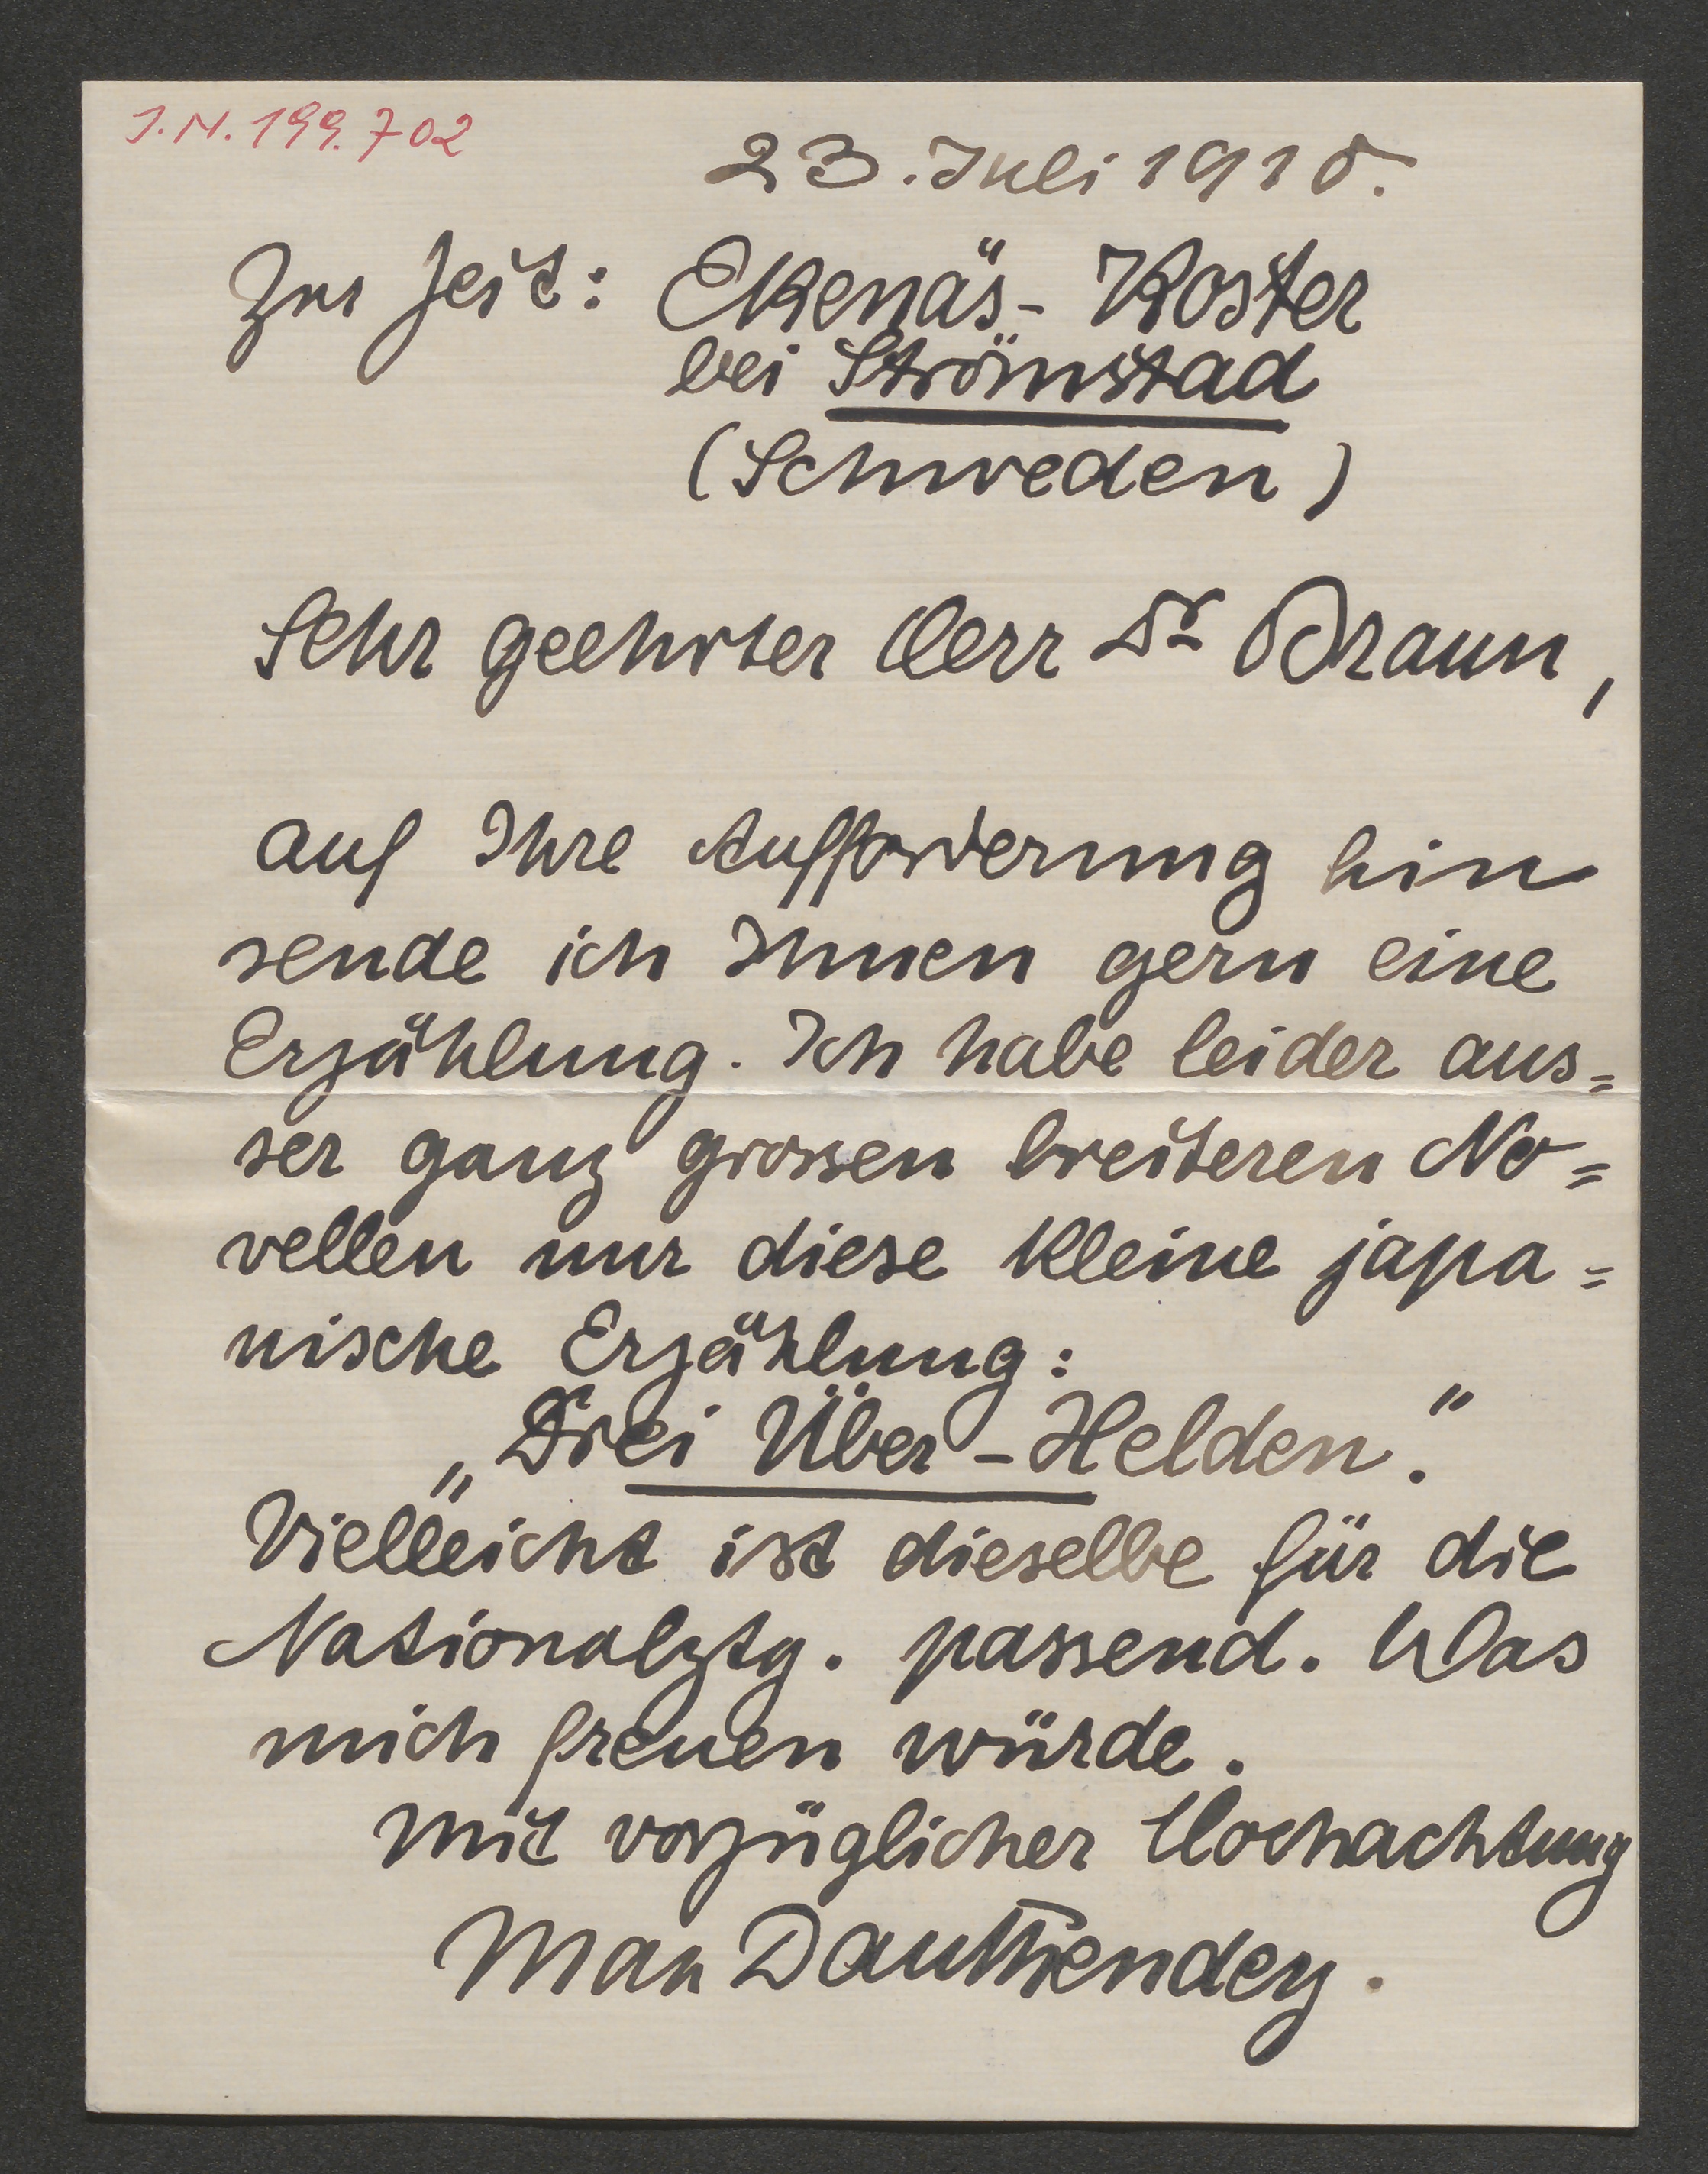 J.N. 199.702
23. Juli 1910.
Zur Zeit: Ekenäs-Koster
bei Strömstad
(Schweden)
Sehr geehrter Herr Dr Braun,
auf Ihre Aufforderung hin
sende ich Ihnen gern eine
Erzählung. Ich habe leider aus=
ser ganz grossen breiteren No=
vellen nur diese kleine japa=
nische Erzählung:
„Drei Über-Helden."
Vielleicht ist dieselbe für die
Nationalztg. passend. Was
mich freuen würde.
Mit vorzüglicher Hochachtung
Max Dauthendey.